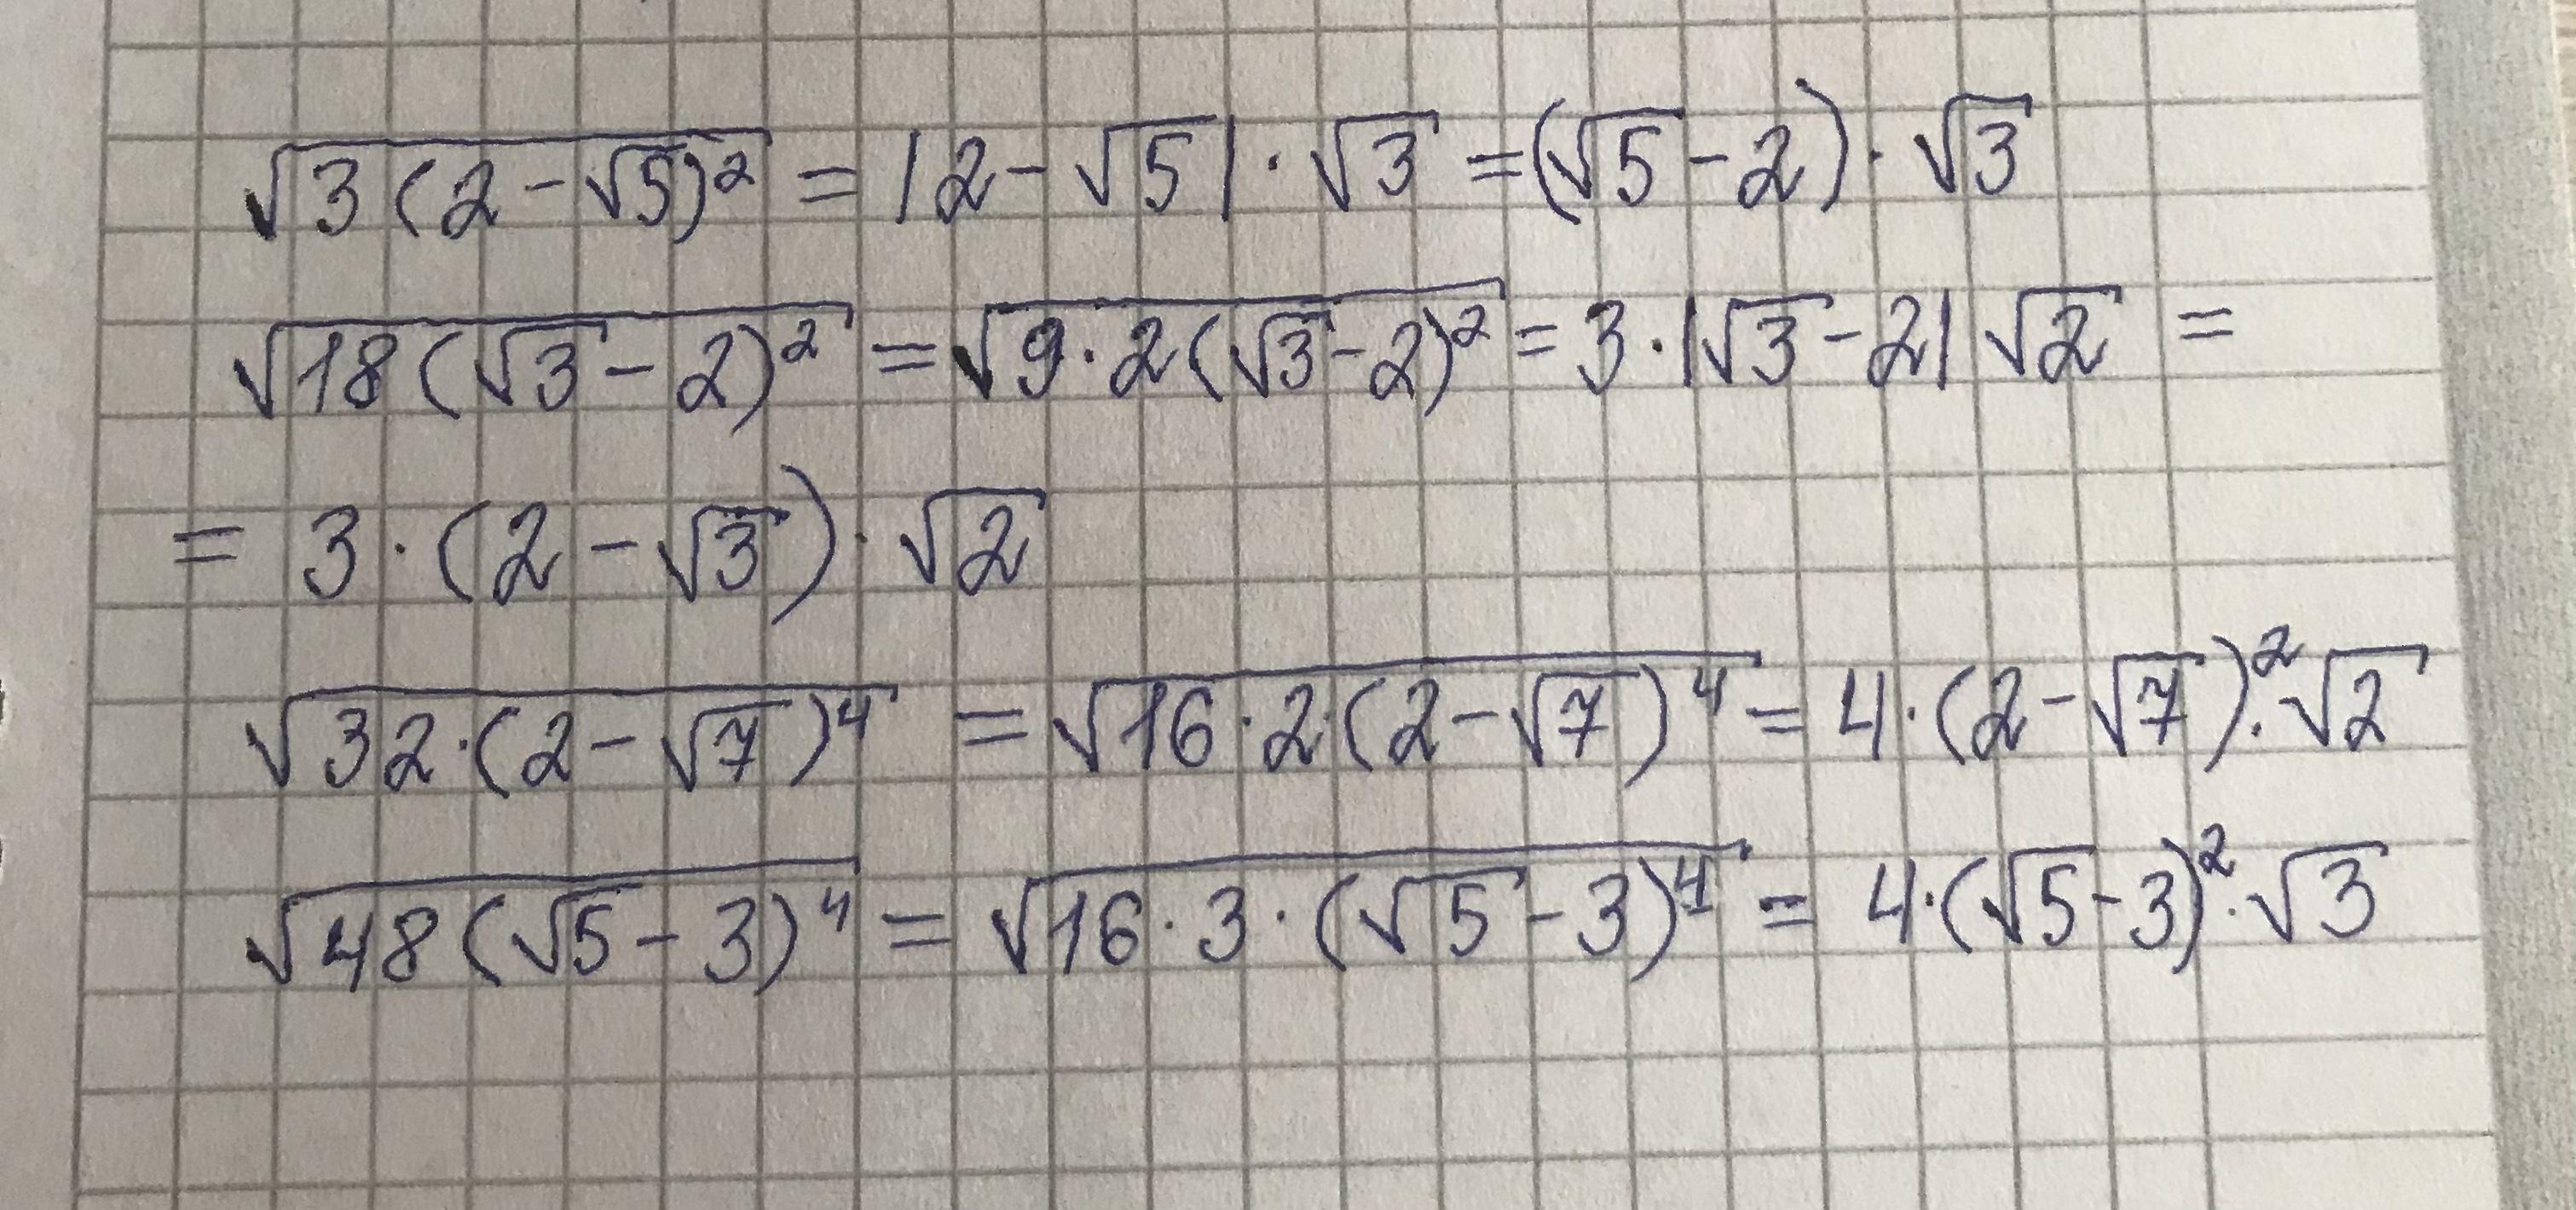 √(3(2-√5)²) = |2-√5|·√3 = (√5-2)·√3
√(18(√3-2)²) = √(9·2(√3-2)²) = 3·|√3-2|√2 =
= 3·(2-√3)·√2
√(32·(2-√7)⁴) = √(16·2·(2-√7)⁴) = 4·(2-√7)²·√2
√(48(√5-3)⁴) = √(16·3·(√5-3)⁴) = 4·(√5-3)²·√3